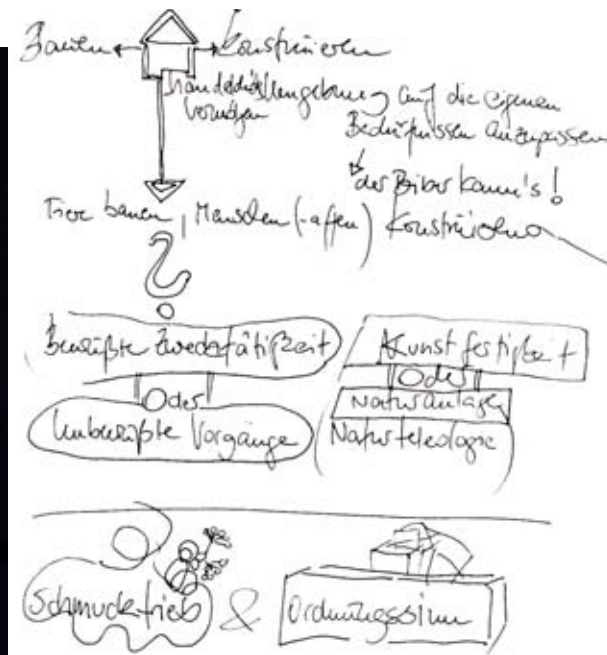 Bauen Konstruieren
auf die eigenen
Bedürfnissen anzupassen
der Biber kann's!
Tiere bauen, Menschen (-affen) Konstruieren
?
Bewußte Zwecktätigkeit
Oder
Unbewußte Vorgänge
Kunstfertigkeit
Oder
Naturanlage
(Naturteleologie)
Schmucktrieb & Ordnungssinn